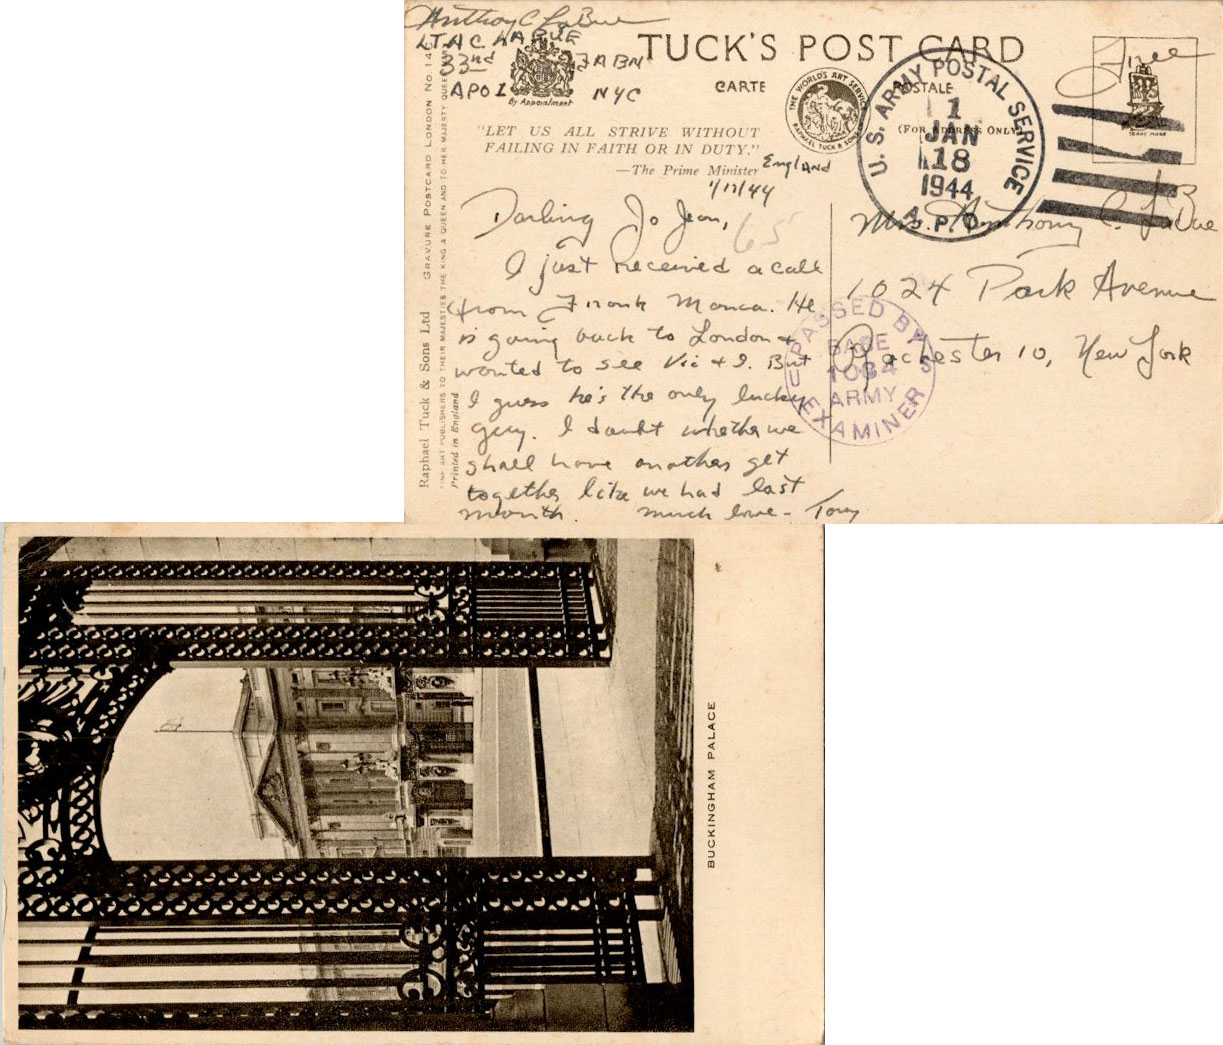 Anthony C LaBue
LT A C LABUE
33rd FABN
APO 1 NYC
By Appointment
TUCK'S POST CARD
CARTE POSTALE
(FOR ADDRESS ONLY)
THE WORLD'S ART SERVICE
RAPHAEL TUCK & SONS
TRADE MARK
Free
U.S. ARMY POSTAL SERVICE
1
JAN
18
1944
A.P.O.
"LET US ALL STRIVE WITHOUT
FAILING IN FAITH OR IN DUTY."
—The Prime Minister
England
1/17/44
65
Darling Jo Jean,
I just received a call
from Frank Manca. He
is going back to London +
wanted to see Vic + I. But
I guess he's the only lucky
guy. I doubt whether we
shall have another get
together like we had last
month. Much love - Tony
Mrs. Anthony C. LaBue
1024 Park Avenue
Rochester 10, New York
PASSED BY
BASE
1084
ARMY
EXAMINER
U S
Raphael Tuck & Sons Ltd GRAVURE POSTCARD LONDON No.
FINE ART PUBLISHERS TO THEIR MAJESTIES THE KING & QUEEN AND TO HER MAJESTY QUEEN
Printed in England
BUCKINGHAM PALACE